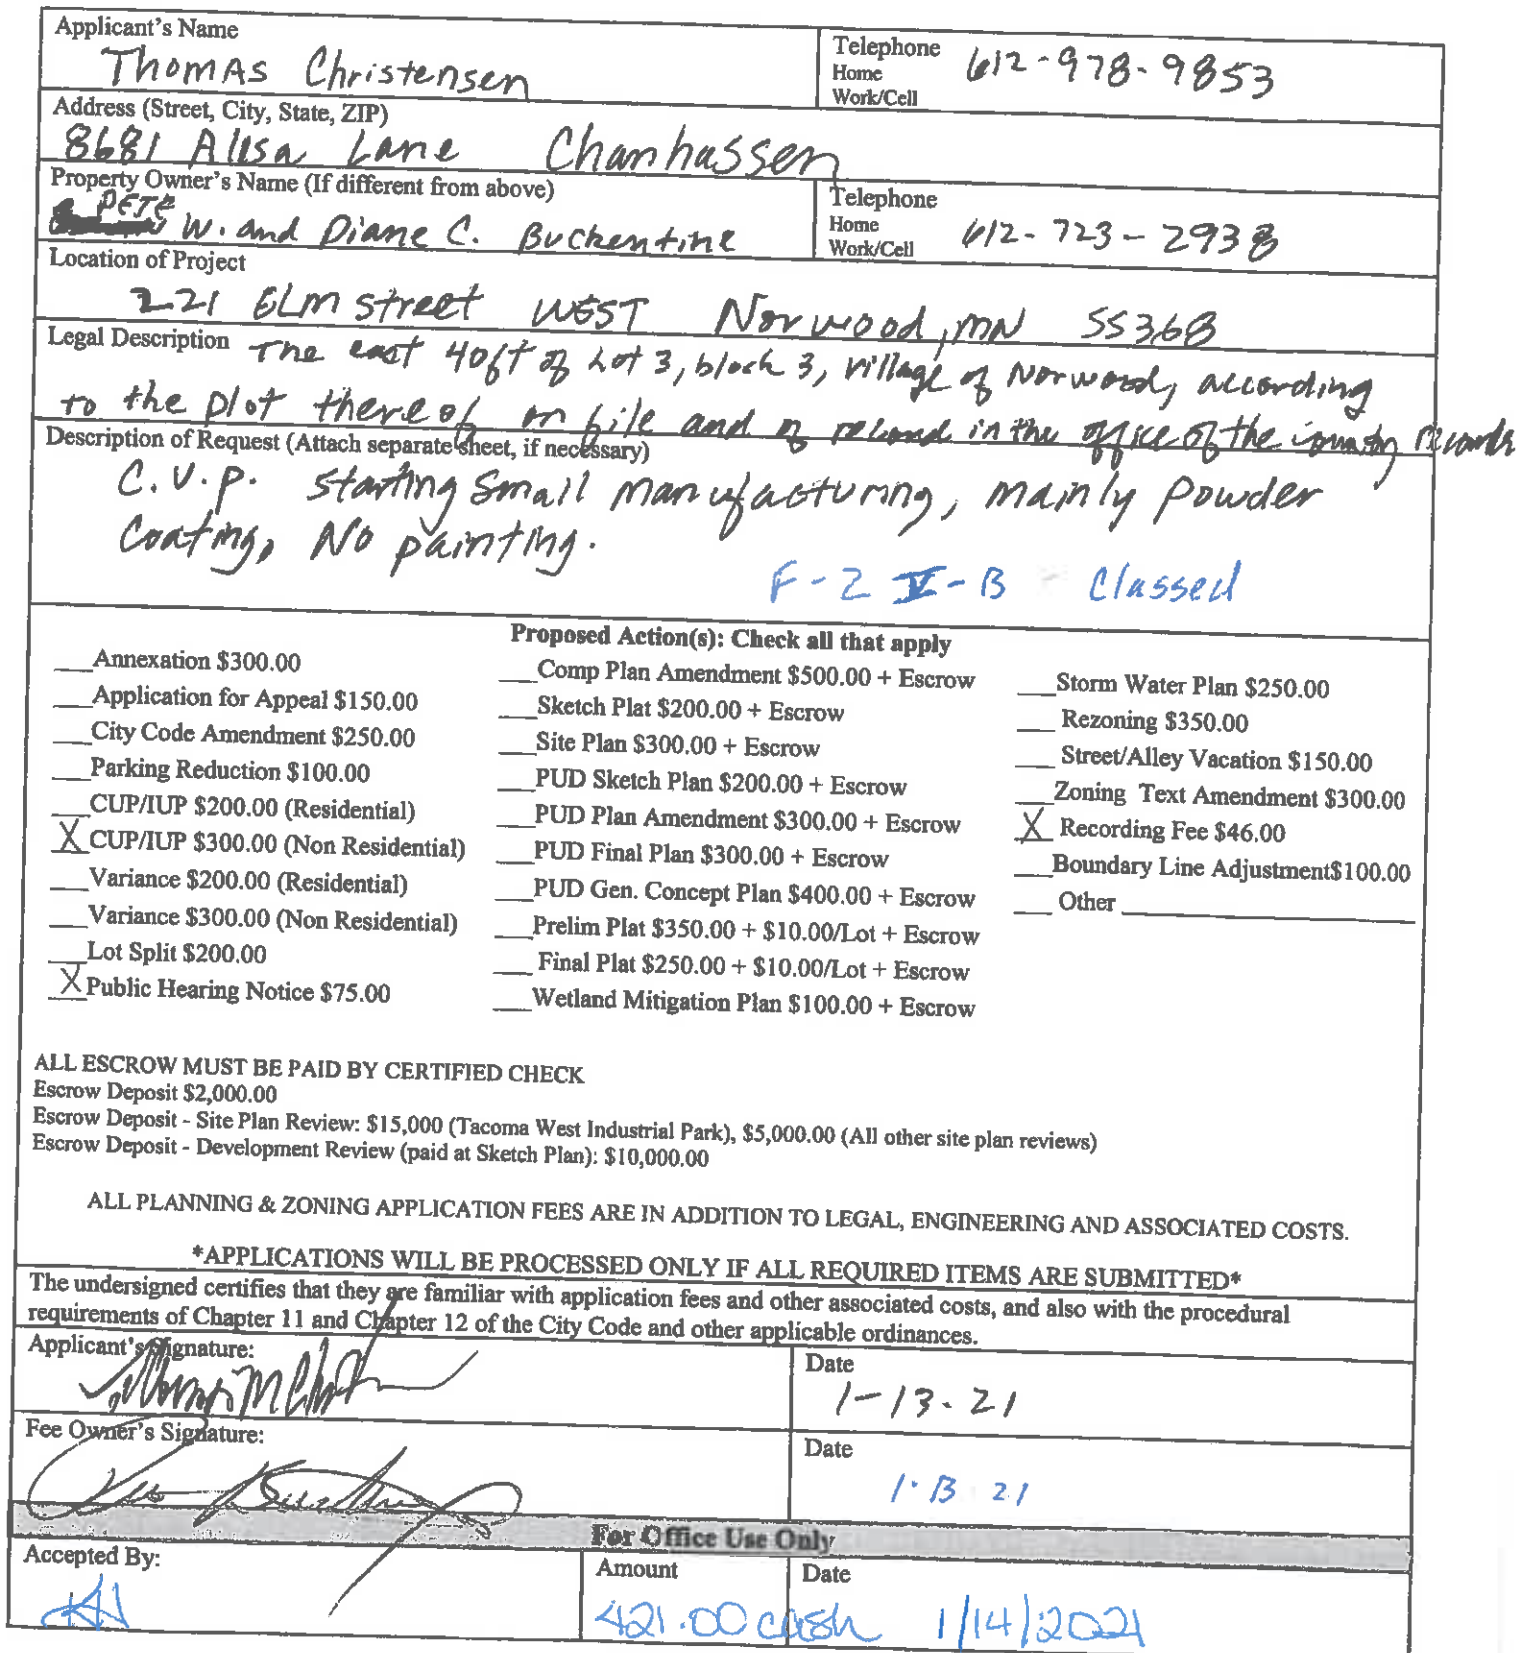 Applicant's Name
Thomas Christensen
Telephone 612-978-9853
Home
Work/Cell
Address (Street, City, State, ZIP)
8681 Alisa Lane Chanhassen
Property Owner's Name (If different from above)
Pete W. and Diane C. Buckentine
Telephone
Home
Work/Cell 612-723-2938
Location of Project
221 Elm street WEST Norwood, MN 55368
Legal Description The east 40ft of Lot 3, block 3, village of Norwood, according
to the plot thereof on file and of record in the office of the county records
Description of Request (Attach separate sheet, if necessary)
C.U.P. starting small manufacturing, mainly powder
coating, No painting.
F-2 V-B Classed
Proposed Action(s): Check all that apply
___Annexation $300.00
___Application for Appeal $150.00
___City Code Amendment $250.00
___Parking Reduction $100.00
___CUP/IUP $200.00 (Residential)
X CUP/IUP $300.00 (Non Residential)
___Variance $200.00 (Residential)
___Variance $300.00 (Non Residential)
___Lot Split $200.00
X Public Hearing Notice $75.00
___Comp Plan Amendment $500.00 + Escrow
___Sketch Plat $200.00 + Escrow
___Site Plan $300.00 + Escrow
___PUD Sketch Plan $200.00 + Escrow
___PUD Plan Amendment $300.00 + Escrow
___PUD Final Plan $300.00 + Escrow
___PUD Gen. Concept Plan $400.00 + Escrow
___Prelim Plat $350.00 + $10.00/Lot + Escrow
___ Final Plat $250.00 + $10.00/Lot + Escrow
___Wetland Mitigation Plan $100.00 + Escrow
___Storm Water Plan $250.00
___ Rezoning $350.00
___ Street/Alley Vacation $150.00
___Zoning Text Amendment $300.00
X Recording Fee $46.00
___Boundary Line Adjustment$100.00
___ Other ____________________
ALL ESCROW MUST BE PAID BY CERTIFIED CHECK
Escrow Deposit $2,000.00
Escrow Deposit - Site Plan Review: $15,000 (Tacoma West Industrial Park), $5,000.00 (All other site plan reviews)
Escrow Deposit - Development Review (paid at Sketch Plan): $10,000.00
ALL PLANNING & ZONING APPLICATION FEES ARE IN ADDITION TO LEGAL, ENGINEERING AND ASSOCIATED COSTS.
*APPLICATIONS WILL BE PROCESSED ONLY IF ALL REQUIRED ITEMS ARE SUBMITTED*
The undersigned certifies that they are familiar with application fees and other associated costs, and also with the procedural
requirements of Chapter 11 and Chapter 12 of the City Code and other applicable ordinances.
Applicant's Signature:
Date
1-13-21
Fee Owner's Signature:
Date
1-13 21
For Office Use Only
Accepted By:
Amount
421.00 cash
Date
1/14/2021